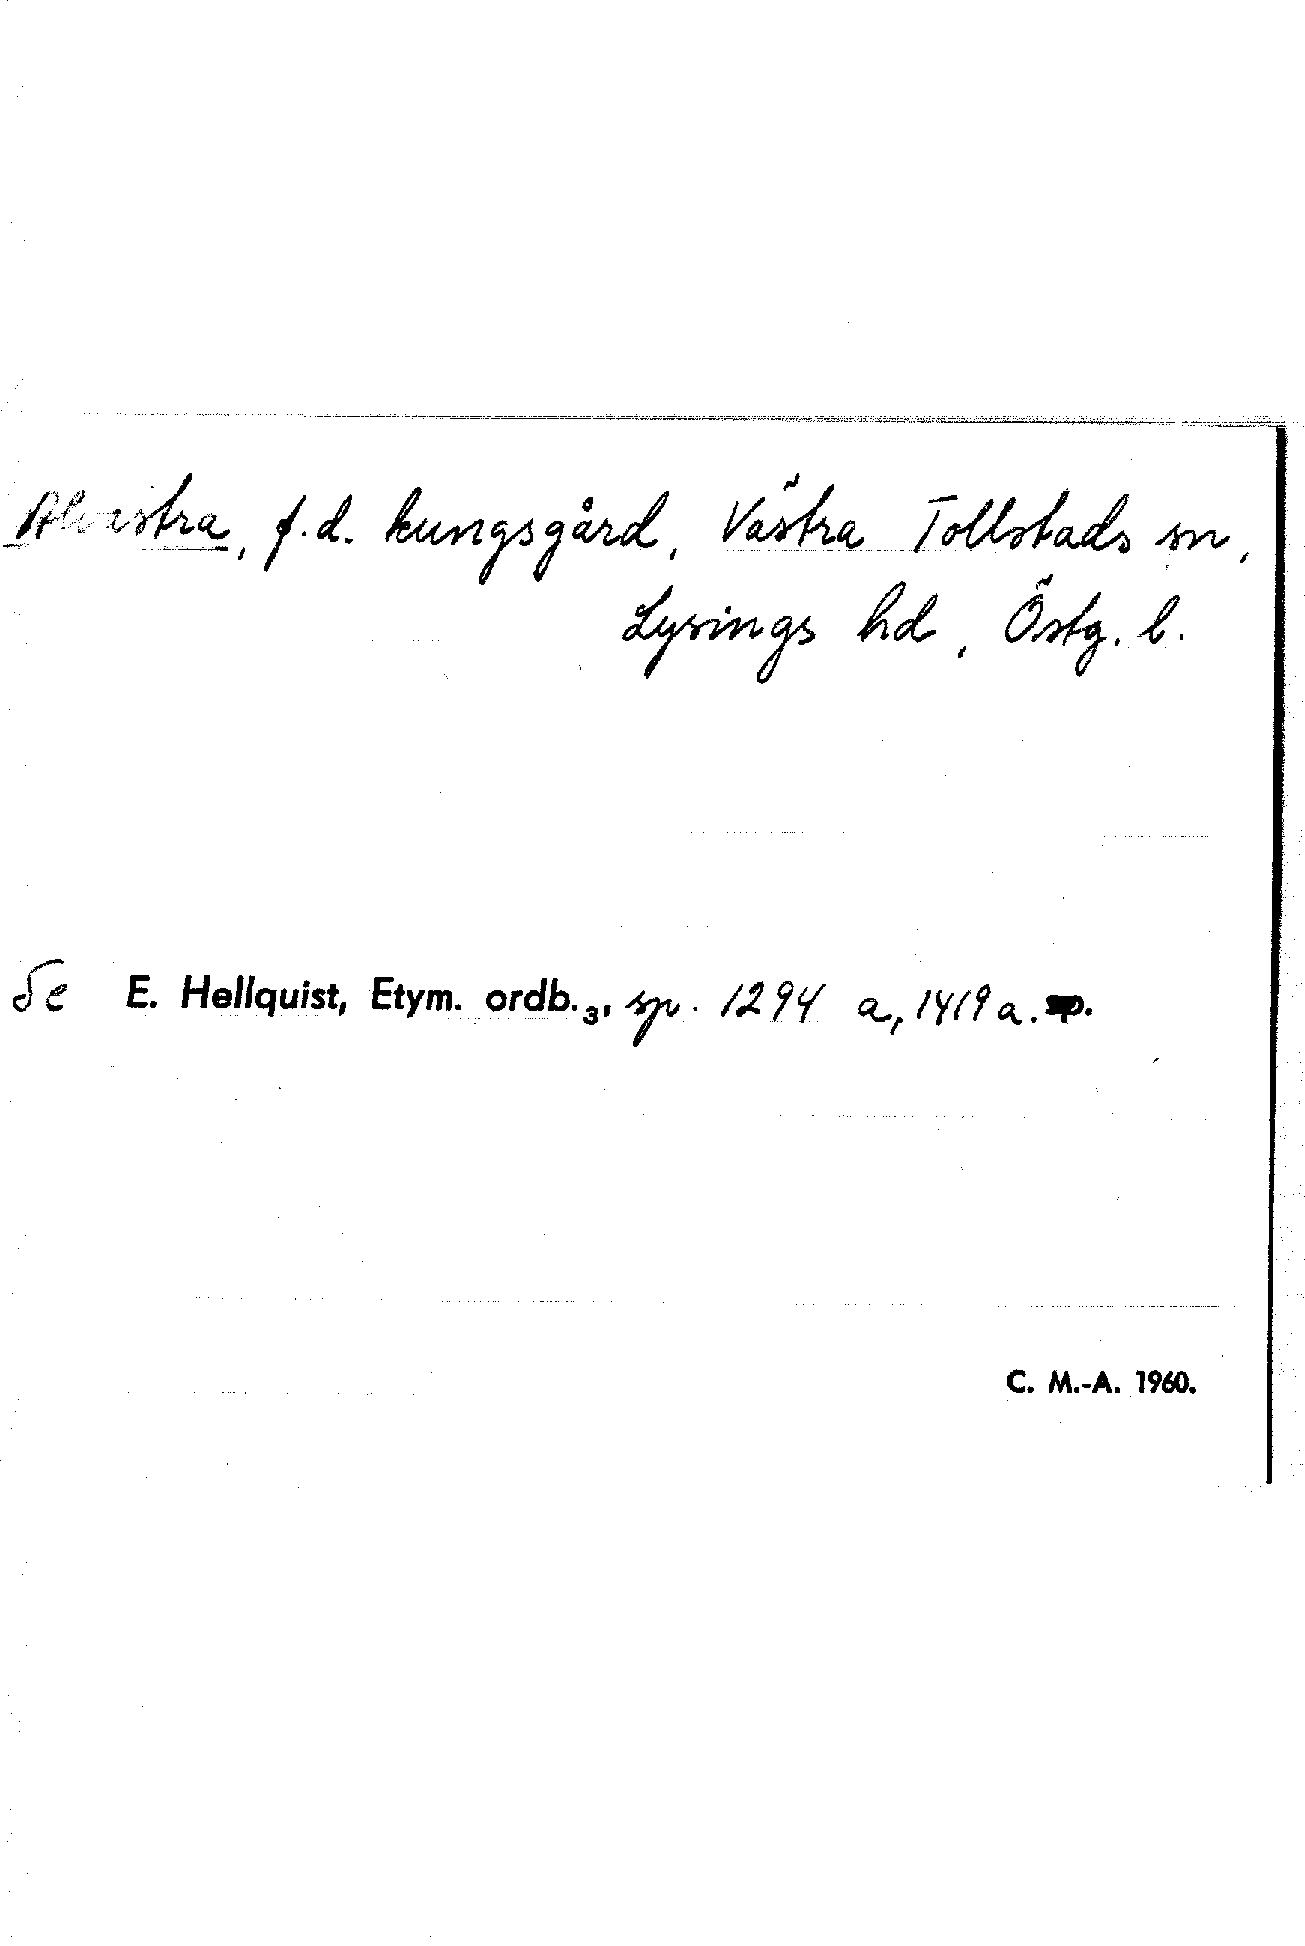 Alvastra, f.d. kungsgård, Västra Tollstads sn,
Lysings hd, Östg. l.
Se E. Hellquist, Etym. ordb.₃, sp. 1294 a, 1419 a.
C. M.-A. 1960.